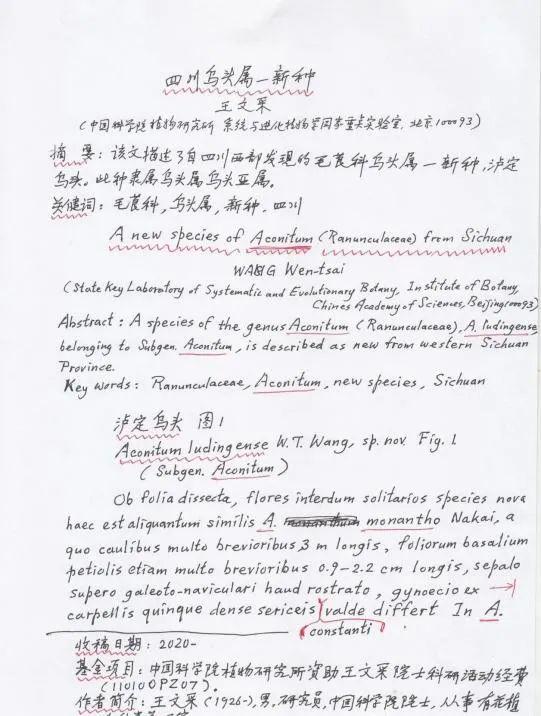 四川乌头属一新种
王文采
(中国科学院植物研究所 系统与进化植物学国家重点实验室, 北京100093)
摘 要: 该文描述了自四川西部发现的毛茛科乌头属一新种, 泸定
乌头。此种隶属乌头属乌头亚属。
关键词: 毛茛科, 乌头属, 新种, 四川
A new species of Aconitum (Ranunculaceae) from Sichuan
WANG Wen-tsai
(State Key Laboratory of Systematic and Evolutionary Botany, Institute of Botany,
Chines Academy of Sciences, Beijing 100093)
Abstract: A species of the genus Aconitum (Ranunculaceae), A. ludingense,
belonging to Subgen. Aconitum, is described as new from western Sichuan
Province.
Key words: Ranunculaceae, Aconitum, new species, Sichuan
泸定乌头 图1
Aconitum ludingense W.T. Wang, sp. nov. Fig. 1
(Subgen. Aconitum)
Ob folia dissecta, flores interdum solitarios species nova
haec est aliquantum similis A. monantho Nakai, a
quo caulibus multo brevioribus 3 m longis, foliorum basalium
petiolis etiam multo brevioribus 0.9-2.2 cm longis, sepalo
supero galeato-naviculari haud rostrato, gynoecio ex
carpellis quinque dense sericeis valde differt In A.
constanti
收稿日期: 2020-
基金项目: 中国科学院植物研究所资助王文采院士科研活动经费
(110100PZ07).
作者简介: 王文采 (1926-), 男, 研究员, 中国科学院院士, 从事有花植